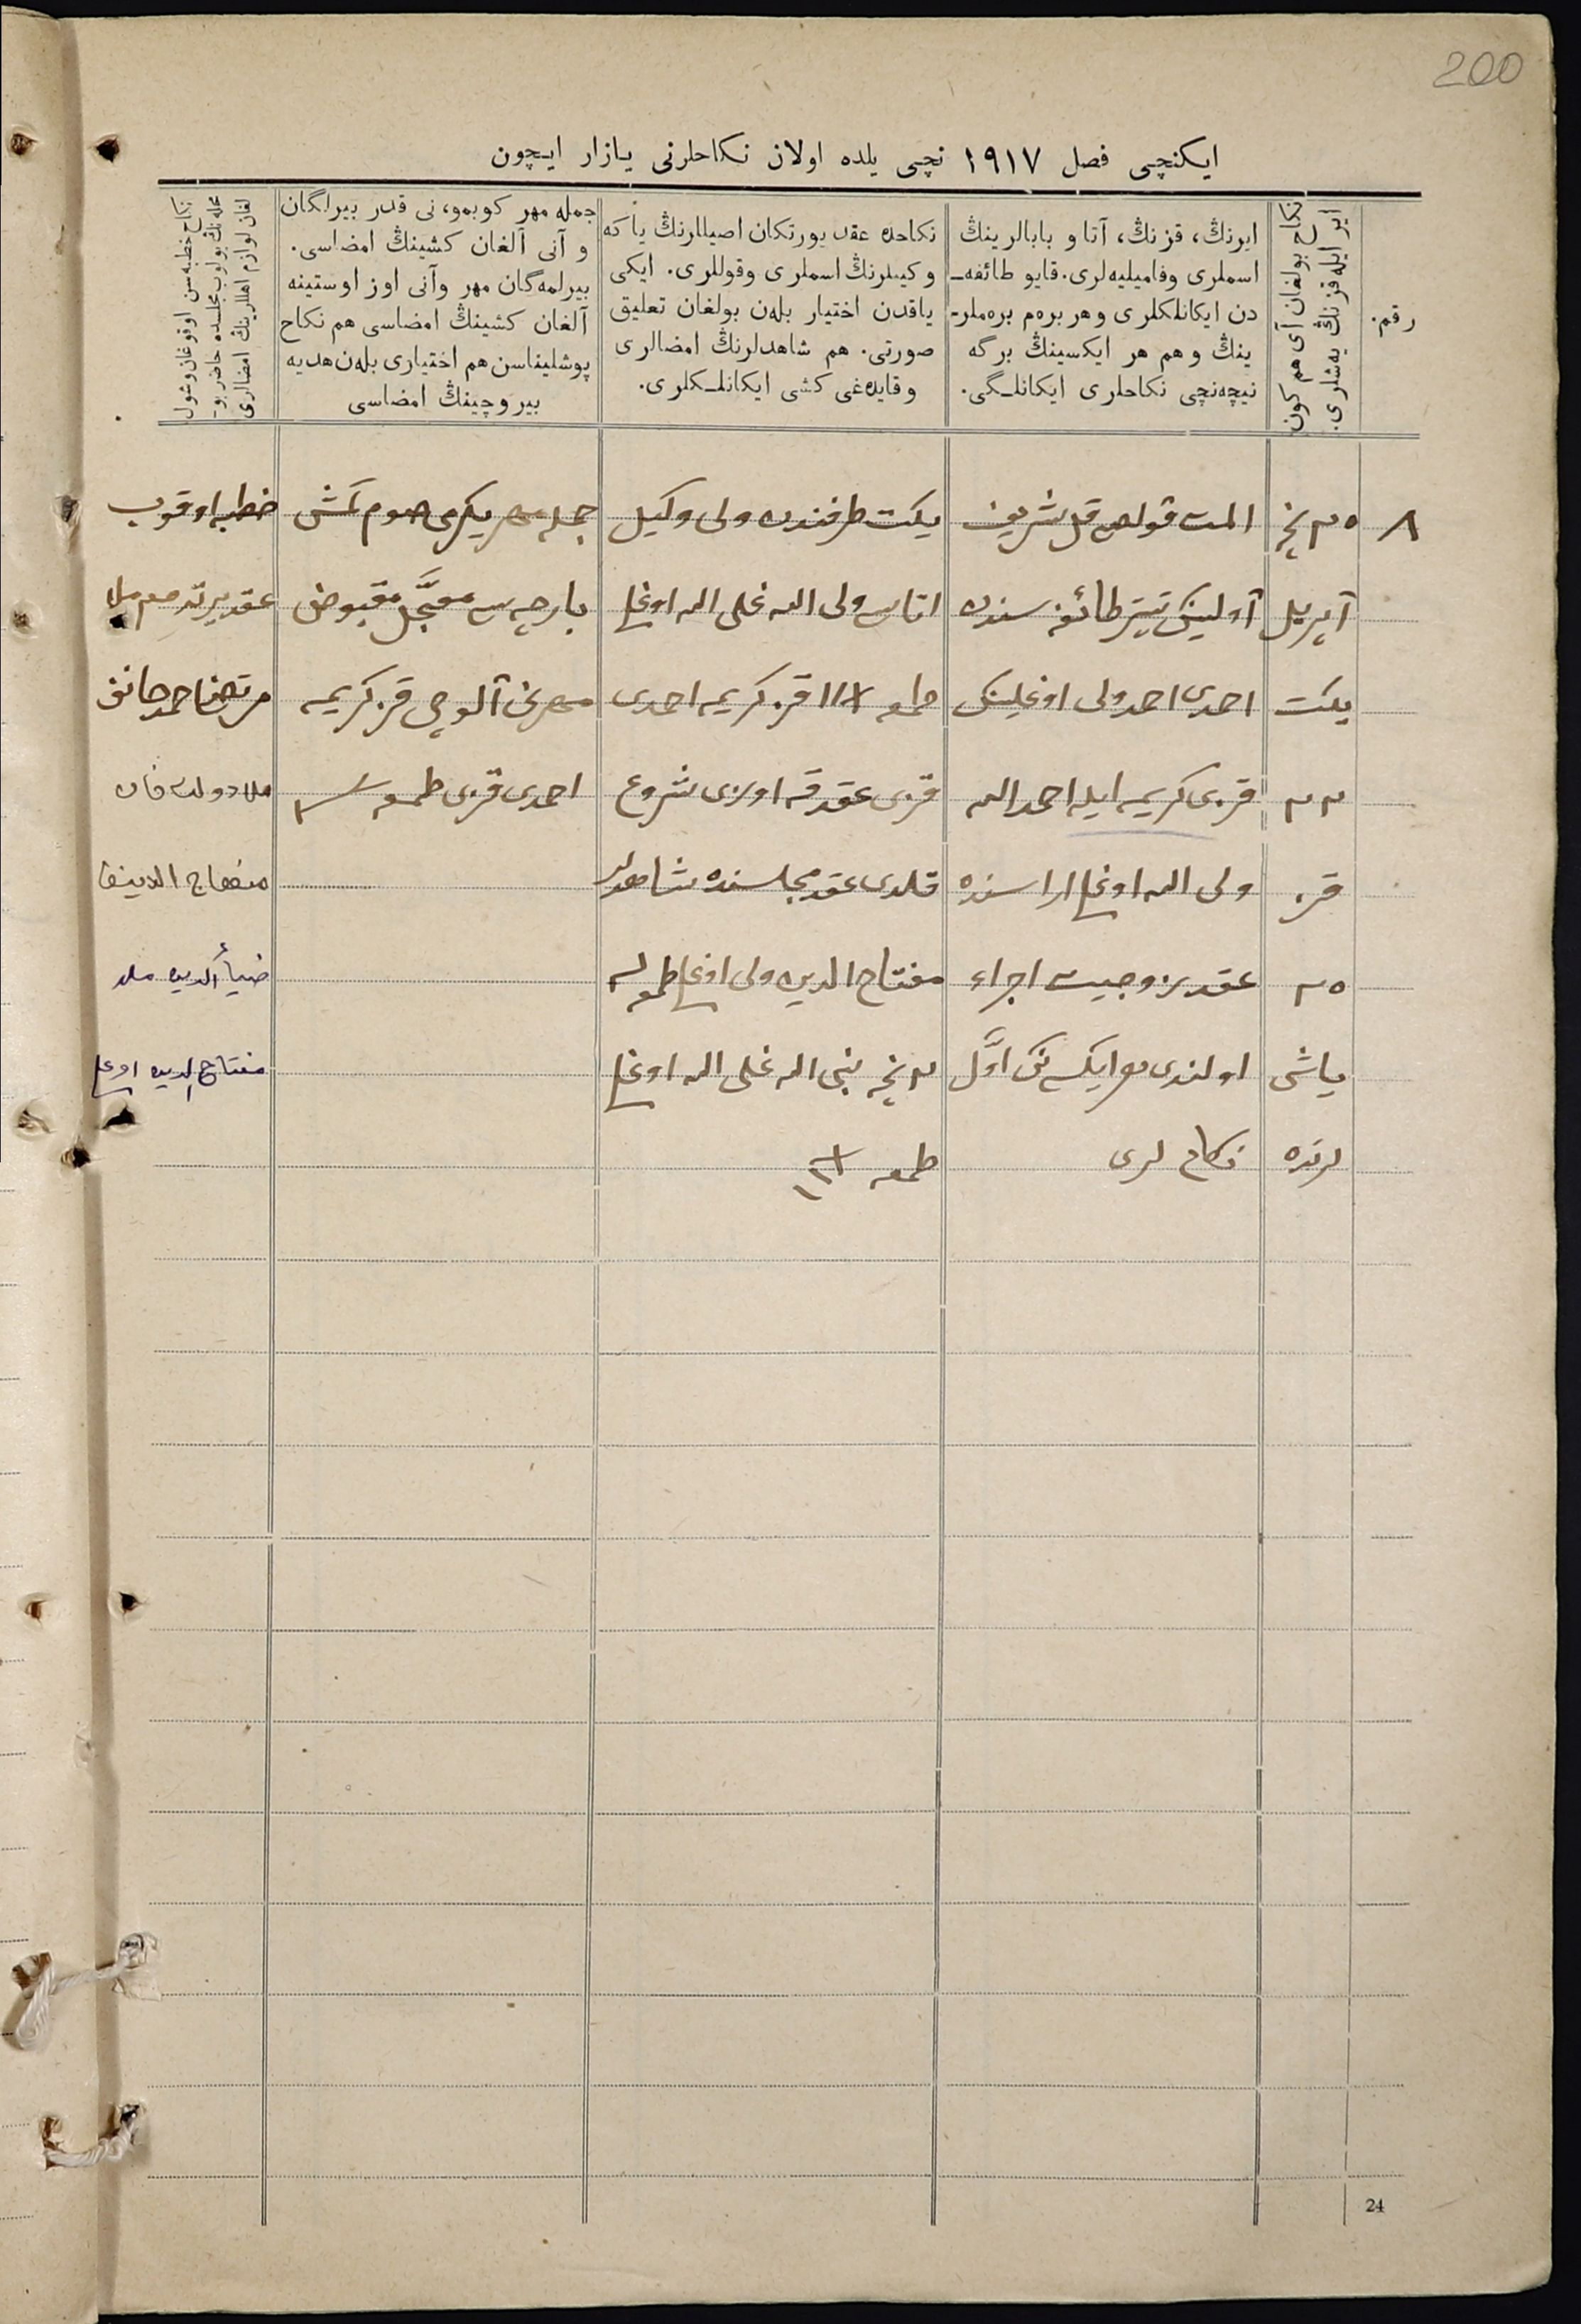 200
ایكنچی فصل ١٩١٧ نچی یلده اولان نكاحلرنی یازار ایچون
رقم.
نكاح بولغان آی هم كون
ایر ایله قزنڭ یه‌شلری.
ایرنڭ، قزنڭ، آتا و بابالرینڭ
اسملری وفامیلیه‌لری. قایو طائفه‌ـ
دن ایكانلكلری و هر بره‌م بره‌ملرـ
ینڭ و هم هر ایكسینڭ برگه
نیچه‌نچی نكاحلری ایكانلـگی.
نكاحده عقد یورتكان اصیللارنڭ یا كه
و كیـلرنڭ اسملری وقوللری. ایكی
یاقدن اختیار بله‌ن بولغان تعلیق
صورتی. هم شاهدلرنڭ امضالری
وقایده‌غی كشی ایكانلـكلری.
جمله مهر كوبمو، نی قدر بیرلگان
و آنی آلغان كشینڭ امضاسی.
بیرلمه‌گان مهر وآنی اوز اوستینه
آلغان كشینڭ امضاسی هم نكاح
پوشلیناسن هم اختیاری بله‌ن هدیه
بیروچینڭ امضاسی
نكاح خطبه‌سن اوقوغان وشول
محله‌نڭ بولوب مجلسده حاضر بوـ
لغان لوازم اهللرینڭ امضالری
٨
٢٥ نچی
آپریل
یكت
٢٢
قز
٢٥
یاشی
لرنده
قل شریف
آولینڭ تیپتر طائفه سندن
احمدی احمدولی اوغلینڭ
قزی كریمه ایله احمد الله
ولی الله اوغلی اراسنده
عقد زوجیت اجراء
اولندی هر ایكسی نڭ اوّل
نكاح لری
یكت طرفندن ولی وكیل
اتاسی ولی الله غلی الله اوغلی
طمغه قز كریمه احمدی
قزی عقدقه اوزی شروع
قلدی عقد مجلسنده شاهدلر
مفتاح الدین ولی اوغلی طمغه
٢ نچی نبی الله غلی الله اوغلی
طمغه
جمله مهر یكرمی صوم كمش
بارچه سی معجّل مقبوض
مهرنی آلوچی قز كریمه
احمدی قزی طمغه
خطبه اوقوب
عقد ایتدم ملا
مرتضا احمدجانف
ملا دولت خان
منهاج الدینف
ضیأالدین ملا
مفتاح الدین اوغلی
24